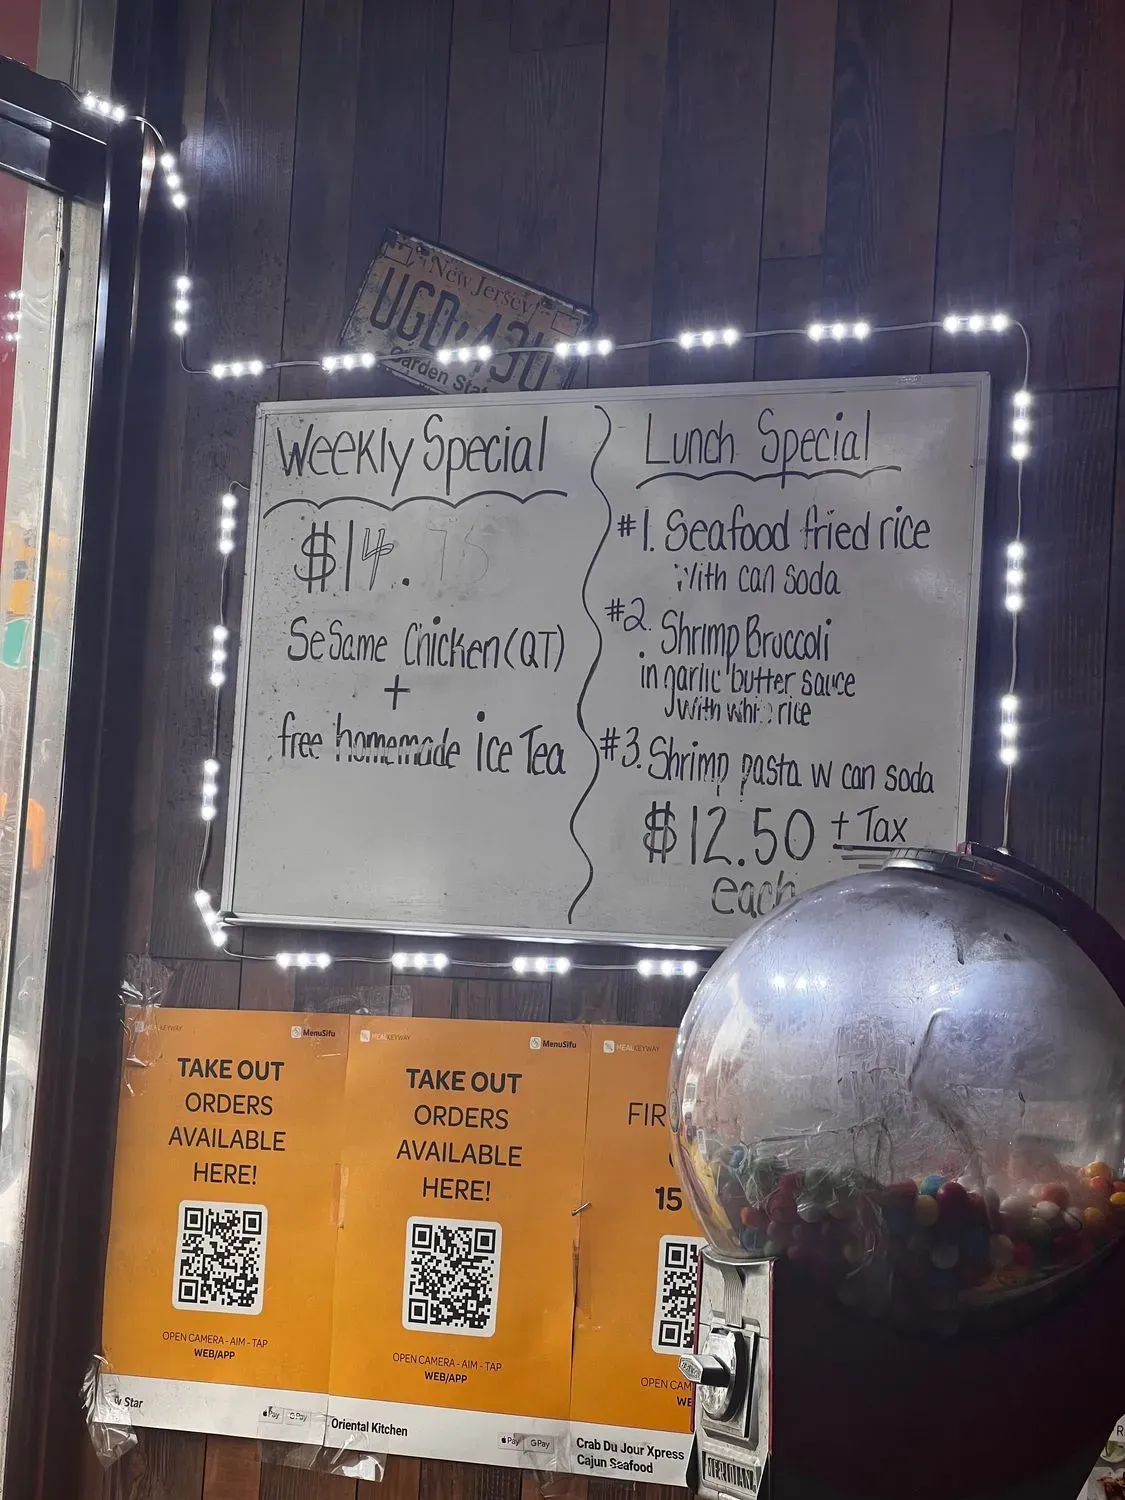 New Jersey
Garden Sta
Weekly Special
$14.75
SeSame Chicken (QT)
+
free homemade ice Tea
Lunch Special
#1. Seafood fried rice
With can soda
#2. Shrimp Bruccoli
in garlic butter sauce
With rice
#3. Shrimp pasta w can soda
$12.50 + Tax
each
MEALKEYWAY
MenuSifu
TAKE OUT
ORDERS
AVAILABLE
HERE!
OPEN CAMERA - AIM - TAP
WEB/APP
w Star
Pay GPay
MEALKEYWAY
MenuSifu
TAKE OUT
ORDERS
AVAILABLE
HERE!
OPEN CAMERA - AIM - TAP
WEB/APP
Oriental Kitchen
Pay GPay
MEALKEYWAY
FIR
15
OPEN CAM
WE
Crab Du Jour Xpress
Cajun Seafood
MERIDIAN